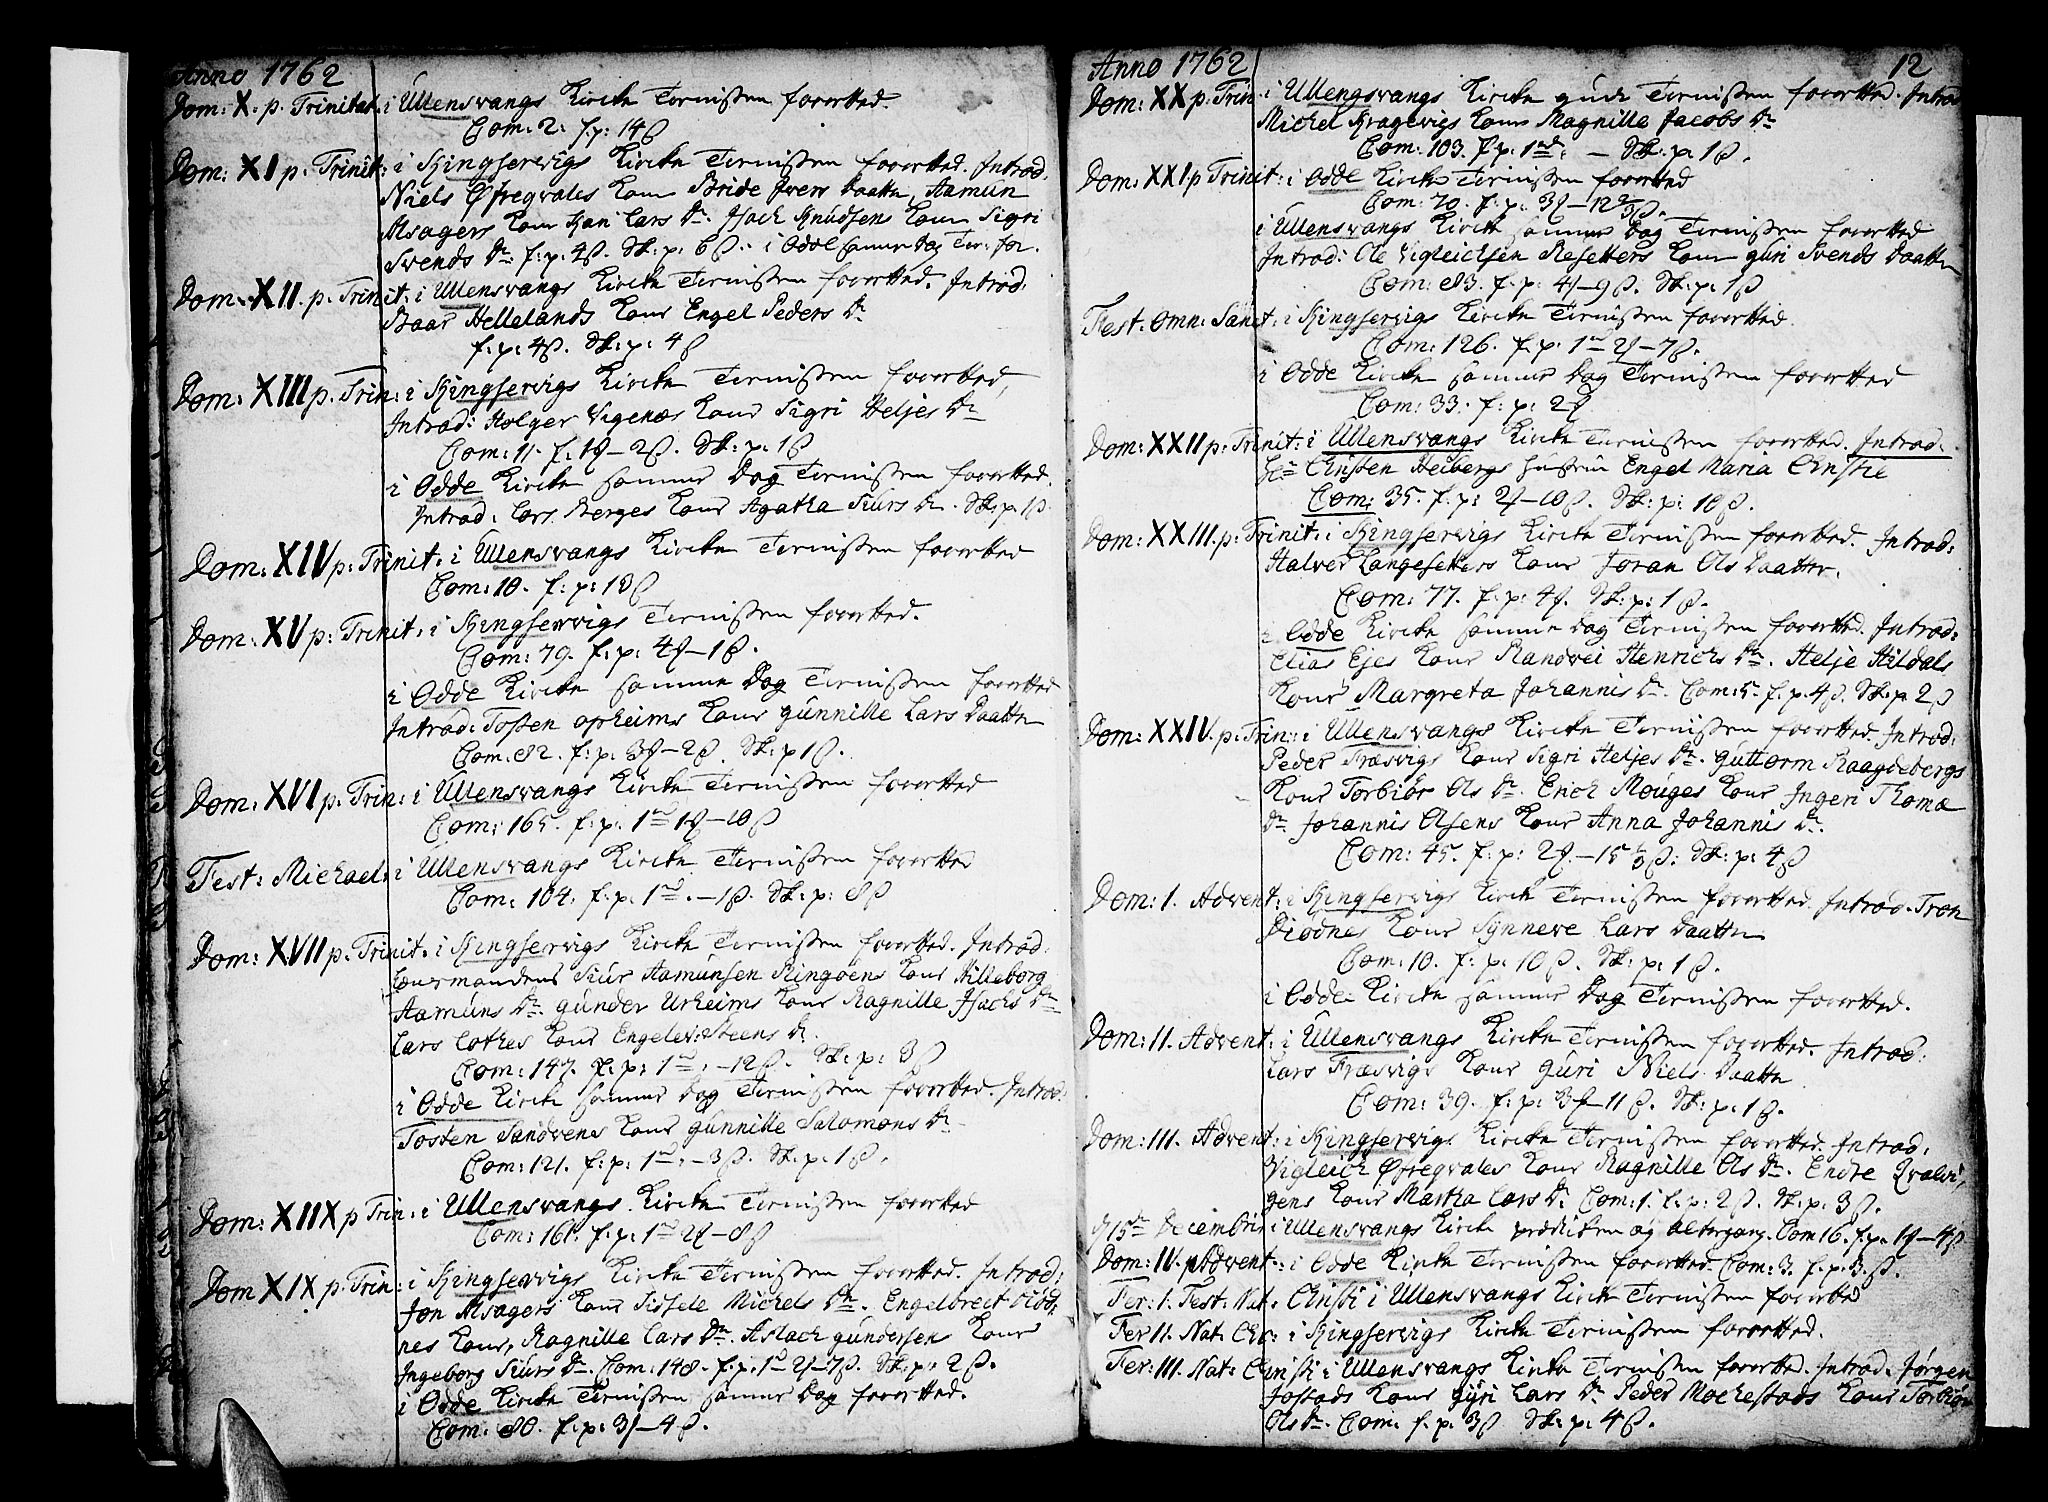 Anno 1762
Dom: X. p. Trinitat: i Ullensvangs Kirche Tienisten forretted.
Com: 2: f: p: 14 ß
Dom: XI p. Trinit: i Kingservigs Kirche Tienisten forretted. Introd:
Niels Øfregvales Kone Bride Ivers Daatter, Aamun
Alsagers Kone Kari Lars Dr. Isach Knudsens Kone Sigri
Svends Dr f: p: 4 ß. Sk: p: 6 ß. i Odde samme Dag Tien: for.
Dom. XII. p. Trinit: i Ullensvangs Kirche Tienisten forretted. Introd:
Baar Hellelands Kone Engel Peders Dr
f: p: 4 ß. Sk: p: 4 ß
Dom: XIII p. Trin: i Kingservigs Kirche Tienisten forretted,
Introd: Holger Vigenæs Kone Sigri Heljes Dr
Com: 11. f. 1 ℳ–2 ß. Sk: p: 1 ß
i Odde Kirche samme Dag Tienisten forretted.
Introd: Lars Berges Kone Agatha Siurs Dr. Sk: p. 1 ß.
Dom: XIV p: Trinit: i Ullensvangs Kirche Tienisten forretted
Com: 10. f: p: 10 ß
Dom: XV p: Trinit: i Kingservigs Tienisten forretted.
Com: 79. f: p: 4 ℳ–1 ß.
i Odde Kirche samme Dag Tienisten forretted
Introd: Tosten opheims Kone gunnille Lars Daatter
Com: 82. f: p: 3 ℳ–2 ß. Sk: p 1 ß.
Dom: XVI p: Trin: i Ullensvangs Kirche Tienisten forretted
Com: 165. f: p: 1 rd 1 ℳ–10 ß
Fest: Michael: i Ullensvangs Kirche Tienisten forretted
Com: 104. f: p: 1 rd. –1 ß. Sk: p: 8 ß
Dom: XVII p. Trinit. i Kingservigs Kirche Tienisten forretted. Introd:
Siur Aamunsen Ringøens Kone Hilleborg
Aamuns Dr. gunder Urheims Kone Ragnille Isachs Dr
Lars Lothes Kone Engelev: Steens Dr.
Com: 147. f: p: 1 rd: –12 ß. Sk: p: 3 ß
i Odde Kirche samme Dag Tienisten forretted. Introd:
Tosten Sandvens Kone Gunnille Salomons Dr
Com: 121. f: p: 1 rd: –3 ß. Sk: p: 1 ß.
Dom: XIIX p Trin: i Ullensvangs Kirche Tienisten forretted
Com: 161. f: p: 1 rd 2 ℳ–8 ß
Dom XIX p: Trin: i Kingservigs Kirche Tienisten forretted. Introd:
Jon Alsagers Kone Sissele Michels Dr. Engelbrect Diød:
nes Kone, Ragnille Lars Dr. Aslach gundersen Kone
Ingeborg Siurs Dr. Com: 148. f. p. 1 rd 2 ℳ–7 ß. Sk: p: 2 ß.
i Odde Kirche Tienisten samme Dag forretted.
Com: 80. f: p: 3 ℳ–4 ß.
Anno 1762
12
Dom: XX p: Trin: i Ullengsvangs Kirche guds Tienisten forretted. Introd
Michel Kragevigs Kone Magnille Jacobs Dr
Com: 103. f: p: 1 rd: – Sk: p: 1 ß.
Dom: XXI p Trinit: i Odde Kirche Tienisten forretted
Com: 70. f: p: 3 ℳ–12 ß.
i Ullensvangs Kirche samme Dag Tienisten forretted
Introd: Ole Vigleichsen Resetters Kone guri Svends Daatter
Com: 83. f: p: 4 ℳ–9 ß. Sk: p: 1 ß
Fest: Omn: Sanct: i Kingservigs Kirche Tienisten forretted.
Com: 126. f. p: 1 rd 2 ℳ–7 ß.
i Odde Kirche samme Dag Tienisten forretted
Com: 33. f: p: 2 ℳ
Dom: XXII p: Trinit: i Ullensvangs Kirche Tienisten forretted. Introd:
Hr Christen Heibergs Hustru Engel Maria Christie
Com: 35. f. p: 2 ℳ–10 ß. Sk: p: 10 ß.
Dom: XXIII. p: Trinit: i Kingservigs Kirche Tienisten forretted. Introd:
Halver Langesetters Kone Joran Ols Daatter.
Com: 77. f: p: 4 ℳ. Sk: p: 1 ß.
i Odde Kirche samme Dag Tienisten forretted. Introd:
Elias Ejes Kone Randvei Henrichs Dr. Helje Hildals
Kone Margreta Johannis Dr. Com: 5. f. p. 4 ß. Sk: p. 2 ß
Dom: XXIV. p: Trin: i Ullensvangs Kirche Tienisten forretted. Introd:
Peder Fræsvigs Kone Sigri Heljes Dr. Guttorm Raagdebergs
Kone Torbiør Ols Dr. Erich Mouges Kone Ingeri Thomæ
Dr Johannis Olsens Kone Anna Johannis Dr.
Com: 45. f: p: 2 ℳ–15 ß: Sk: p: 4 ß
Dom: 1. Advent: i Kingservigs Kirche Tienisten forretted. Introd. Tron
Diødnes Kone Synneve Lars Daatter
Com: 10. f: p: 10 ß. Sk: p: 1 ß.
i Odde Kirche samme Dag Tienisten forretted.
Dom: 11. Advent: i Ullensvangs Kirche Tienisten forretted. Introd:
Lars Fræsvigs Kone Guri Niels Daatter
Com: 39. f: p: 3 ℳ–11 ß. Sk: p: 1 ß.
Dom: 111. Advent: i Kingservigs Kirche Tienisten forretted. Introd:
Vigleich Øfregvales Kone Ragnille Ols Dr. Endre Qvalvi,
gens Kone Martha Lars Dr Com: 1. f: p: 2 ß. Sk: p: 3 ß.
d 15de Decembris i Ullensvangs Kirche prædichen og altergang. Com 16. f. p. 1 ℳ–4 ß
Dom: IV. p Advent: i Odde Kirche Tienisten forretted. Com: 3. f. p. 3 ß.
Fer: 1. Fest: Nat: Christi i Ullensvangs Kirche Tienisten forretted
Fer 11. Nat: Chr: i Kingservigs Kirche Tienisten forretted.
Fer: 111. Nat: Christi i Ullensvangs Kirche Tienisten forrettet. Introd. Jørgen
Jostads Kone Guri Lars Dr Peder Mochestads Kone Torbiør
Ols Dr. Com: f. p: 3 ß Sk: p: 4 ß.